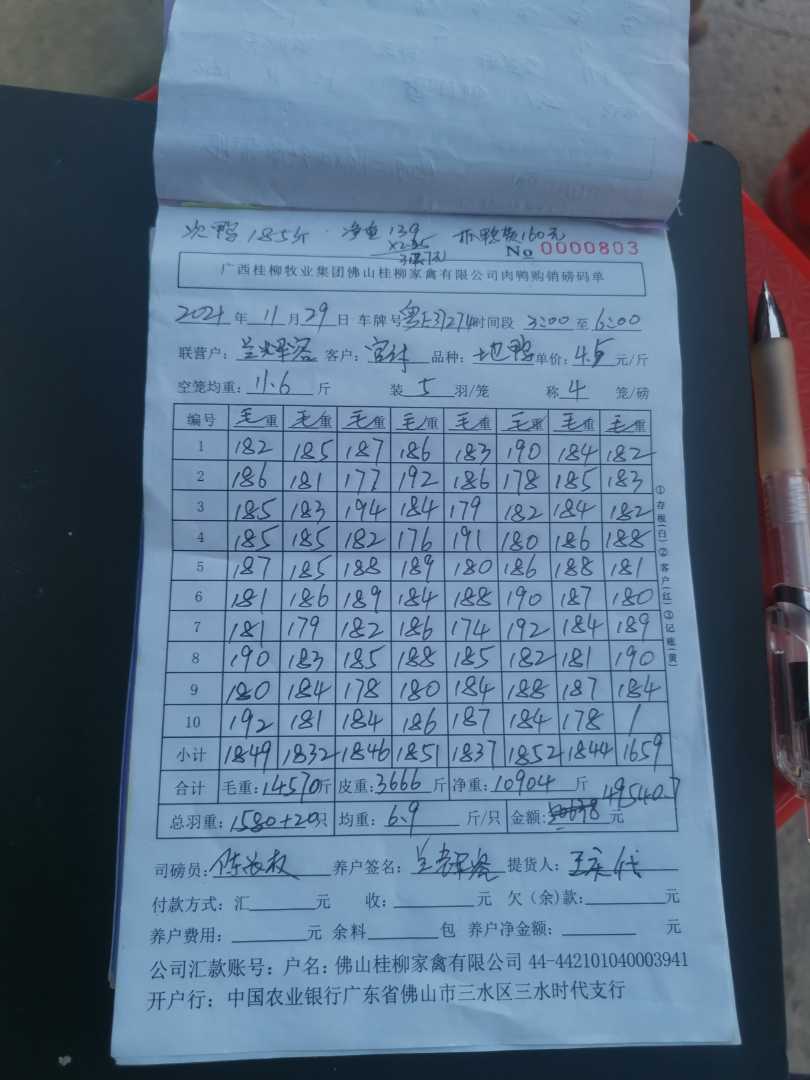 次鸭 185斤. 净重 139 抓鸭费160元
No 0000803
广西桂柳牧业集团佛山桂柳家禽有限公司肉鸭购销磅码单
2021年11月29日 车牌号 时间段 3:00 至 6:00
联营户: 客户: 品种: 地鸭 单价: 4.5 元/斤
空笼均重: 11.6 斤 装 5 羽/笼 称 4 笼/磅
编号 毛重 毛重 毛重 毛重 毛重 毛重 毛重 毛重
1 182 185 187 186 183 190 184 182
2 186 181 177 192 186 178 185 183
3 185 183 194 184 179 182 184 182
4 185 185 182 176 191 180 186 188
5 187 185 188 189 180 186 188 181
6 181 186 189 184 188 190 187 180
7 181 179 182 186 174 192 184 189
8 190 183 185 188 185 182 181 190
9 180 184 178 180 184 188 187 184
10 192 181 184 186 187 184 178 /
小计 1849 1832 1846 1851 1837 1852 1844 1659
合计 毛重: 14570斤 皮重: 3666斤 净重: 10904 斤
总羽重: 1580+20只 均重: 6.9 斤/只 金额: 49540.7 元
①存根(白)②客户(红)③记账(黄)
司磅员: 养户签名: 提货人:
付款方式: 汇 元 收: 元 欠(余)款: 元
养户费用: 元 余料 包 养户净金额: 元
公司汇款账号: 户名: 佛山桂柳家禽有限公司 44-442101040003941
开户行: 中国农业银行广东省佛山市三水区三水时代支行